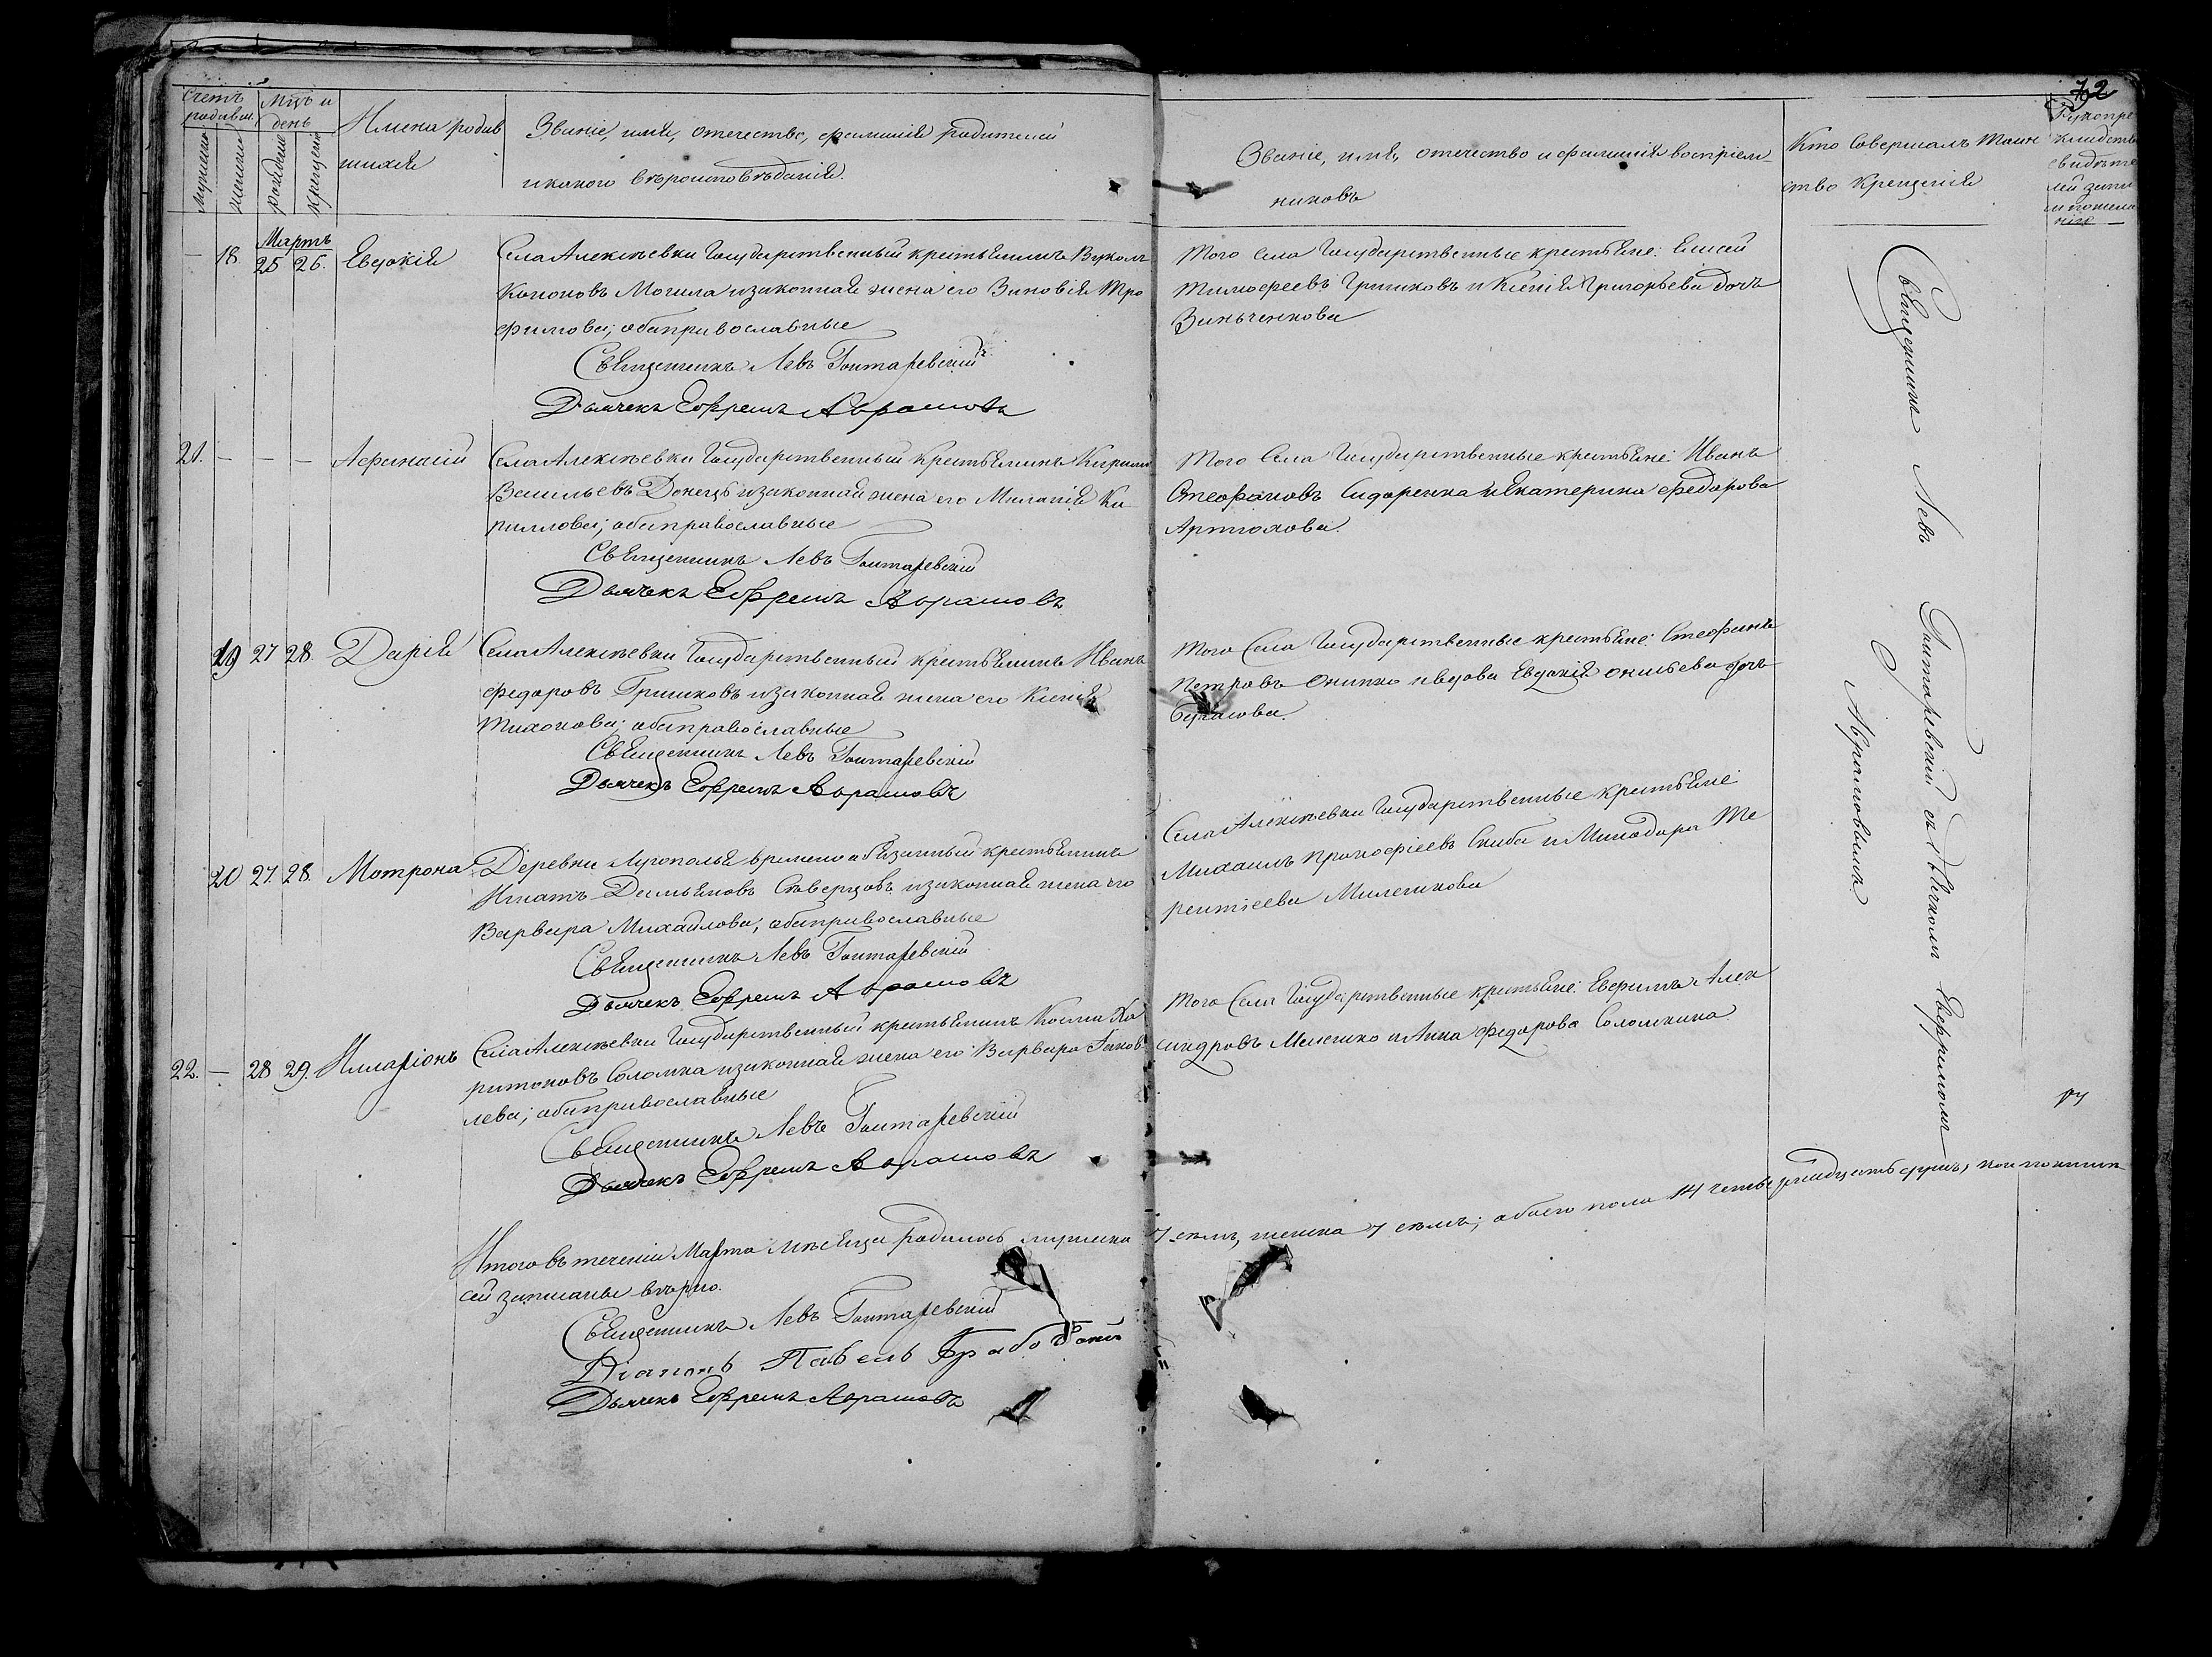 72
Счетъ родивш.
Мцъ и день
мужска
женска
рожденія
крещенія
Имена родив
шихся
Званіе, имя, отечество, фамилія родителей
и какого вѣроисповѣданія.
Званіе, имя, отечество и фамилія воспріем-
никовъ
Кто совершалъ таин
ство крещенія
Рукопри
кладство
свидѣте
лей записи
по жела
нію
Мартъ
— 18. 25 26. Евдокія
Села Алексѣевки Государственный крестьянинъ Вуколъ
Кононовъ Могила и законная жена его Зиновія Тро
фимова; оба православные
Священникъ Левъ Гонтаревскій
Дьячекъ Ефремъ Аврамовъ
Того Села Государственные крестьяне: Елисей
Тимофеевъ Гришковъ и Ксенія Григорьева дочь
Зинченкова
21. — — — Афанасій
Села Алексѣевки Государственный крестьянинъ Кирилъ
Васильевъ Донецъ и законная жена его Миланія Ки-
риллова; оба православные
Священникъ Левъ Гонтаревскій
Дьячекъ Ефремъ Аврамовъ
Того Села Государственные крестьяне: Иванъ
Стефановъ Сидоренка и Екатерина Федорова
Артюхова.
19 27 28. Дарія
Села Алексѣевки Государственный крестьянинъ Иванъ
Федоровъ Гришковъ и законная жена его Ксенія
Тихонова; оба православные
Священникъ Левъ Гонтаревскій
Дьячекъ Ефремъ Аврамовъ
Того Села Государственные крестьяне: Стефанъ
Петровъ Онипко и вдова Евдокія
20 27. 28. Мотрона
Деревни Луганолья временно обязанный крестьянинъ
Игнатъ Демьяновъ Сиверцовъ и законная жена его
Варвара Михайлова; оба православные
Священникъ Левъ Гонтаревскій
Дьячекъ Ефремъ Аврамовъ
Села Алексѣевки Государственные крестьяне
Михаилъ Прокофіевъ Скиба и Минодора Те
рентіева Мелешкова
22. — 28 29. Илларіонъ
Села Алексѣевки Государственный крестьянинъ Косма Ха
ритоновъ Соломка и законная жена его Варвара Яков
лева; оба православные
Священникъ Левъ Гонтаревскій
Дьячекъ Ефремъ Аврамовъ
Того Села Государственные крестьяне: Евфимъ Алек
сандровъ Мелешко и Анна Федорова Соломкина.
Священникъ Левъ Гонтаревскій съ дьячкомъ Ефремомъ
Аврамовымъ
Итого въ теченіи Марта мѣсяца родилось мужеска 7 семь, женска 7 семь; обоего пола 14 четырнадцать душъ, кои по книги
сей записаны вѣрно.
Священникъ Левъ Гонтаревскій
Діаконъ Павелъ
Дьячекъ Ефремъ Аврамовъ